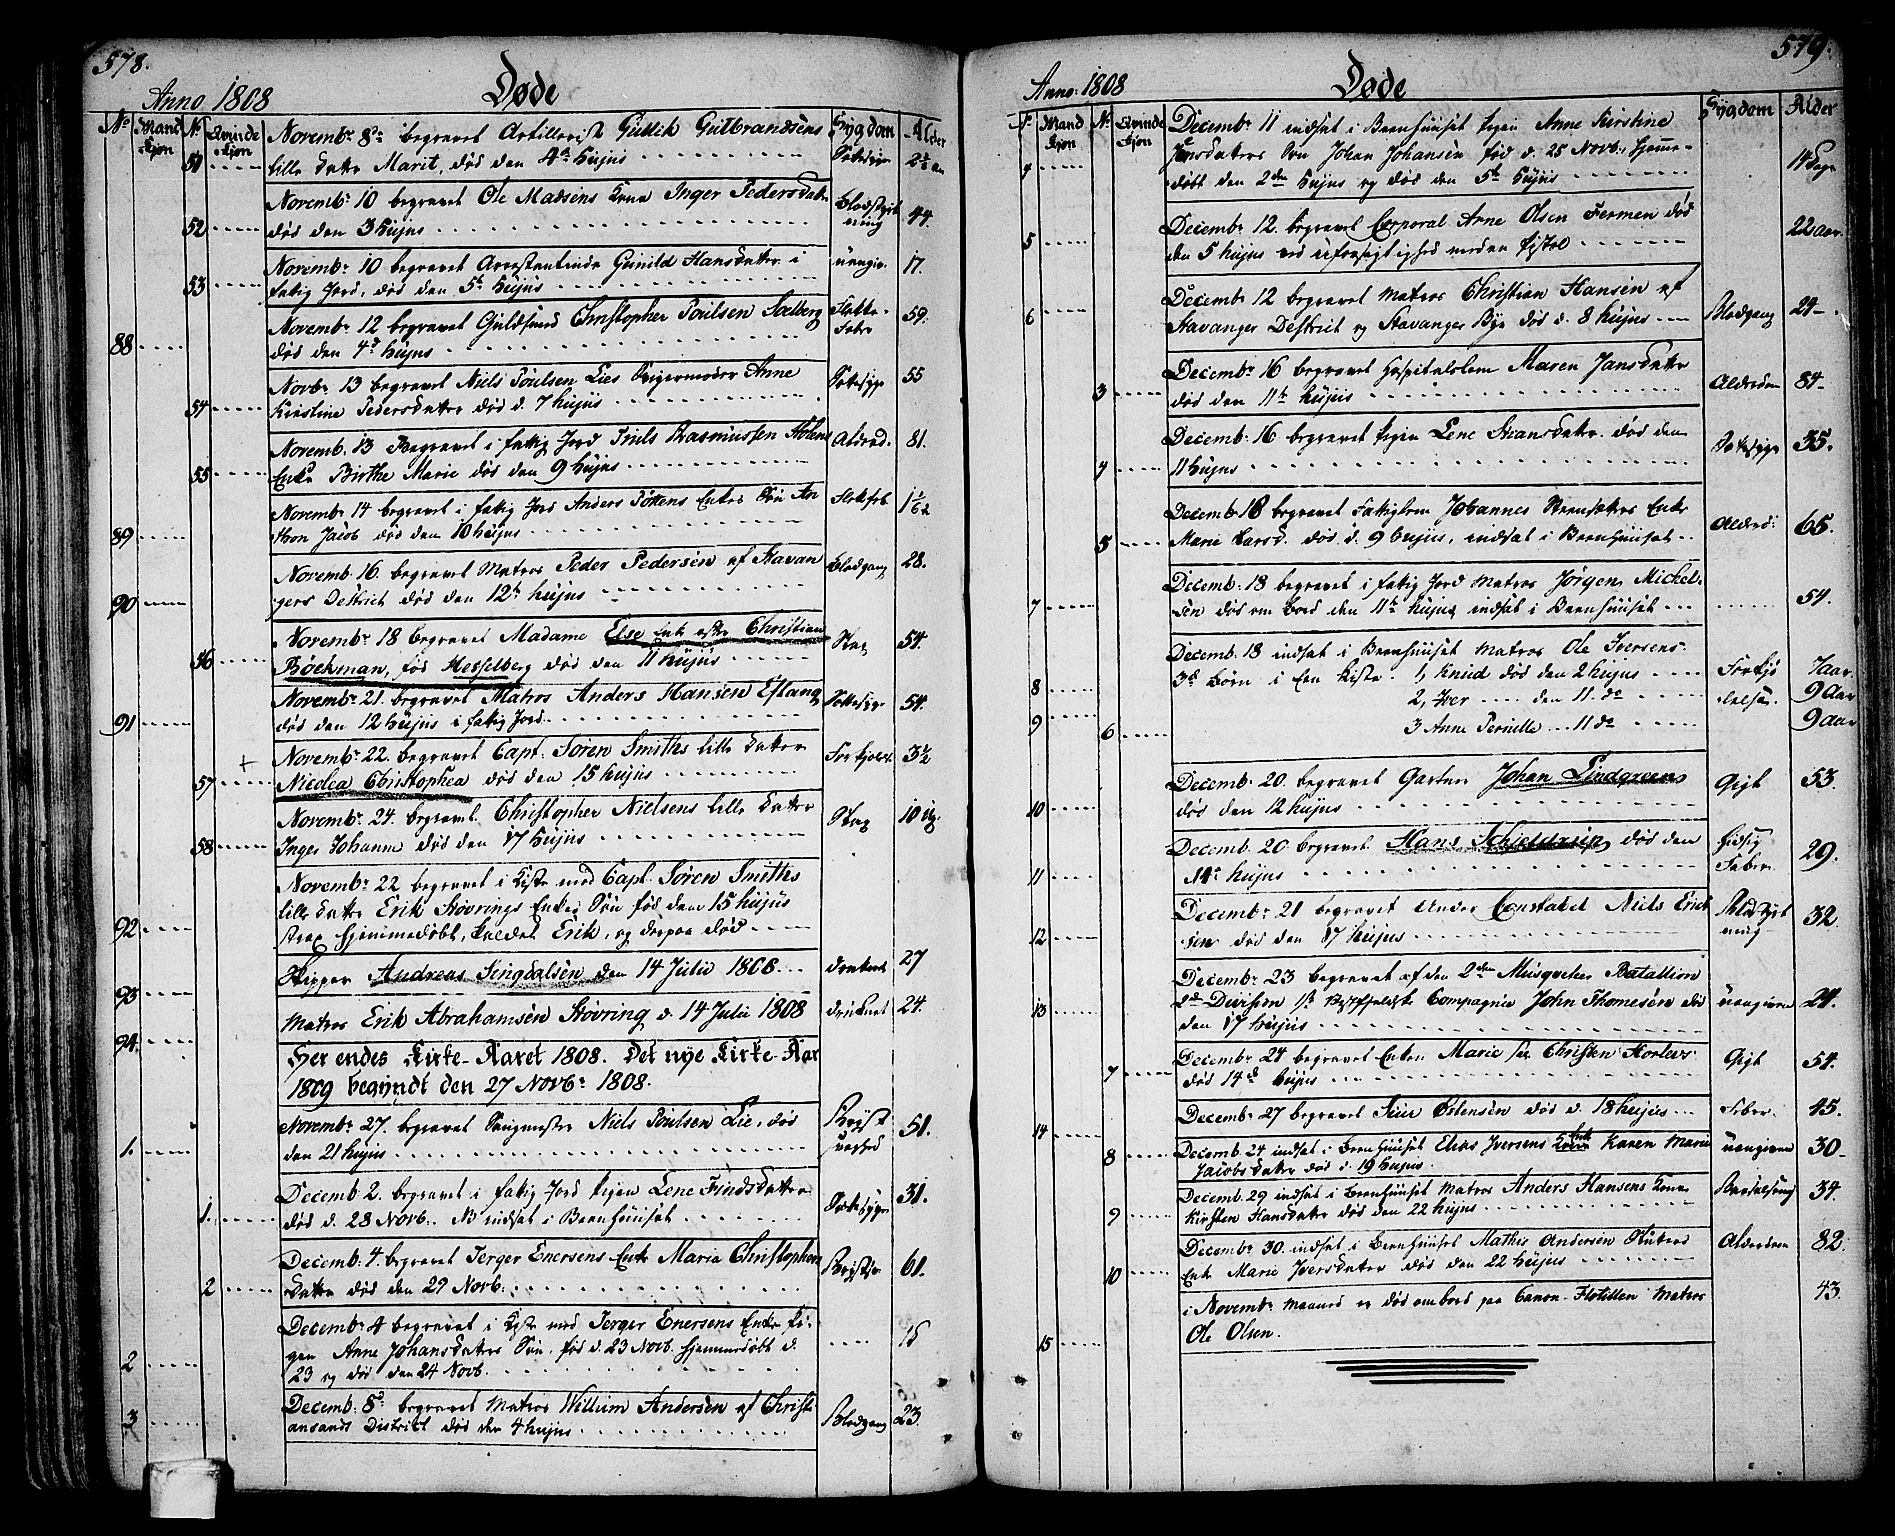 578.
Anno 1808 Døde
No Mand Kjøn No Qvinde Kjøn Sygdom Alder
51 Novembr. 8de begravet Artillerist Gullik Gulbrandsens
lille Datter Marit, død den 4de hujus 2½ aar
52 Novemb. 10 begravet Ole Madsens Kone Inger Pedersdatter
død den 3 hujus Blodstyrtning 44.
53 Novembr. 10 begravet Arrestantinde Gunild Hansdatter i
fatig Jord, død den 5te hujus uangiv. 17.
88 Novembr. 12 begravet Guldsmed Christopher Poulsen Solberg
død den 4de hujus Flekke-Feber 59.
54 Novbr. 13 begravet Niels Poulsen Lies Svigermoder Anne
Kirstine Pedersdatter død d. 7 hujus Sottesyge 55
55 Novemb. 13 Begravet i fatig Jord Rasmussen
Enke Birthe Marie død den 9 hujus Alderd. 81.
89 Novembr. 14 begravet i fatig Jord Anders Enkes Søn
Jacob død den 10 hujus Flekfeb. 1
90 Novemb. 16. begravet Matros Peder Pedersen af Stavan
gers Destrict død den 12te hujus Blodgang 28.
56 Novembr. 18 begravet Madame Else Enke efter Christian
Böckman, fød Hesselberg død den 11 hujus Slag 54.
91 Novembr. 21. begravet Matros Anders Hansen Eftang
død den 12 hujus i fatig Jord Sottesyge 54.
+
57 Novembr. 22. begravet Capt. Sören Smiths lille Datter
Nicolea Christophea død den 15 hujus Forkjølet 3½
58 Novembr. 24. begravet Christopher Nielsens lille Datter
Inger Johanne død den 17 hujus Slag 10 Ug.
92 Novembr. 22 begravet i Kiste med Capt. Sören Smiths
lille Datter Erik Støvrings Enkes Søn fød den 15 hujus
strax hjemmedøbt, kaldet Erik, og derpaa død
93 Skipper Andreas Lingdalsen den 14 Julii 1808 druknet 27
94. Matros Erik Abrahamsen Støvring d. 14 Julii 1808 druknet 24.
Her endes Kirke-Aaret 1808. Det nye Kirke-Aar
1809 begyndt den 27 Novbr. 1808.
1. Novembr. 27. begravet Niels Poulsen Lie, død
den 21 hujus 51.
1. Decemb. 2. begravet i fatig Jord Pigen Lene Findsdatter
død d. 28 Novb. NB indsat i Beenhuuset Sottesyge 31.
2 Decemb. 4. begravet Jerger Enersens Enke Maria Christophers
datter død den 29 Novb. Brystsyge 61.
2 Decembr. 4 begravet i Kiste med Jerger Enersens Enke Pi-
gen Anne Johansdatters Søn, fød d. 23 Novb. hjemmedøbt d.
23 og død den 24 Novb.
3 Decemb. 8de begravet Matros Willum Andersen af Christi
ansands District død den 4 hujus Blodgang 23

579.
Anno 1808 Døde
Mand Kjøn No Qvinde Kjøn Sygdom Alder
4 Decembr. 11 indsat i Beenhuuset Pigen Anne Kirstine
Jensdatters Søn Johan Johansen fød d. 25 Novb. hjemme-
døbt den 2den hujus og død den 5te hujus 14 Dage
5 Decembr. 12. begravet Corporal Arne Olsen Fermen død
den 5 hujus ved uforsigtighed med en Pistol 22 aar.
6 Decembr. 12 begravet Matros Christian Hansen af
Stavanger Destrict og Stavanger Bye død d. 8 hujus Blodgang 24-.
3 Decembr. 16 begravet Hospitalslem Maren Jansdatter
død den 11te hujus Alderdom 84-
4 Decemb. 16 begravet Pigen Lene Svansdatter død den
11 hujus Sottesyge 35.
5 Decemb 18 begravet Fatiglem Johannes Enke
Marie Larsd. død d. 9 hujus, indsat i Beenhuuset Alderd: 65.
7 Decemb. 18 begravet i fatig Jord Matros Jörgen Michel-
sen død om Bord den 11te hujus indsat i Beenhuuset 54.
Decemb. 18 indsat i Beenhuuset Matros Ole Iversens
8 3de Børn i Een Kiste. 1, Knud død den 2 hujus Forkjø 7 aar.
9 2, Iver den 11. do lelse. 9 aar
6 3 Anne Pernille 11 do 9 aar
10 Decemb. 20. begravet Gartner Johan Lindgreen
død den 12 hujus Gigt 53.
11 Decemb. 20 begravet Hans Schieldrup død den
14de hujus hidsig Feber 29.
12 Decembr. 21 begravet Under Constabel Niels Erick
sen død den 17 hujus Blodstyrtning 32.
13 Decembr. 23 begravet af den 2den Musqueteer Bataillion
Division 1te Compagnie John Thomesen død
den 17 hujus uangiven 24.
7 Decembr. 24 begravet Enken Marie Sal. Christen Horlevs
død 14de hujus Gigt 54.
14 Decembr. 27 begravet Siur Østensen død d. 18 hujus Feber. 45.
8 Decemb. 24 indsat i Beenhuuset Elias Iversens Kone Enke Karen Marie
Jacobsdatter død d. 19 hujus. uangiven 30-
9 Decemb. 29 indsat i Beenhuuset Matros Anders Hansens Kone
Kirsten Hansdatter død den 22 hujus Barselseng 34.
10 Decembr. 30. indsat i Beenhuuset Mathis Andersen
Enke Marie Iversdatter død den 22 hujus Alderdom 82.
15 i Novembr. Maaned er død ombord paa Canon-Flotillen Matros
Ole Olsen. 43.